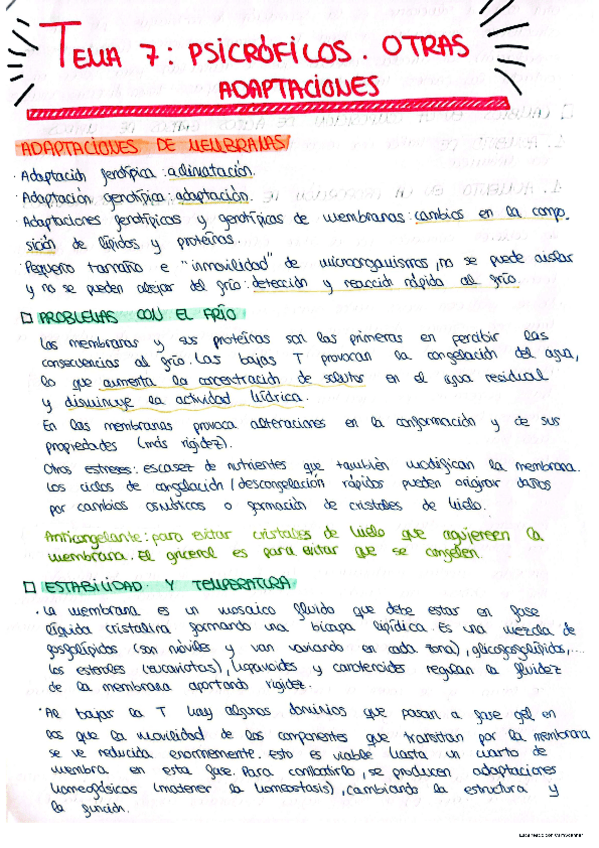 TEMA 7: PSICRÓFICOS. OTRAS
ADAPTACIONES
ADAPTACIONES DE MEMBRANAS
· Adaptación fenotípica: aclimatación.
· Adaptación genotípica: adaptación.
· Adaptaciones fenotípicas y genotípicas de membranas: cambios en la compo
sición de lípidos y proteínas.
· Pequeño tamaño e "inmovilidad" de microorganismos, no se puede aislar
y no se pueden alejar del frío: detección y reacción rápida al frío.
PROBLEMAS CON EL FRÍO
Las membranas y sus proteínas son las primeras en percibir las
consecuencias al frío. Las bajas T provocan la congelación del agua,
lo que aumenta la concentración de solutos en el agua residual
y disminuye la actividad hídrica.
En las membranas provoca alteraciones en la conformación y de sus
propiedades (más rigidez).
Otros estreses: escasez de nutrientes que también modifican la membrana.
Los ciclos de congelación/descongelación rápidos pueden originar daños
por cambios osmóticos o formación de cristales de hielo.
Anticongelante: para evitar cristales de hielo que agujereen la
membrana. El glicerol es para evitar que se congelen.
ESTABILIDAD Y TEMPERATURA
· La membrana es un mosaico fluido que debe estar en fase
líquida cristalina formando una bicapa lipídica. Es una mezcla de
fosfolípidos (son móviles y van variando en cada zona), glicofosfolípidos,...
los esteroles (eucariotas), hopanoides y carotenoides regulan la fluidez
de la membrana aportando rigidez.
· Al bajar la T hay algunos dominios que pasan a fase gel en
los que la movilidad de los componentes que transitan por la membrana
se ve reducida enormemente. Esto es viable hasta un cuarto de
membrana en esta fase. Para combatirlo, se producen adaptaciones
homeofásicas (mantener la homeostasis), cambiando la estructura y
la función.